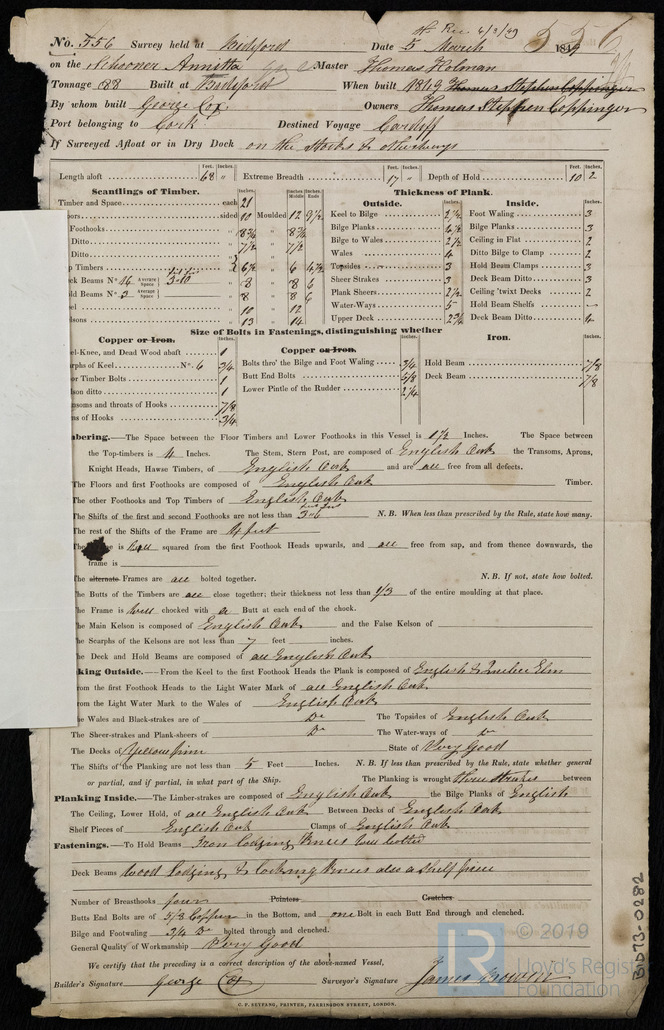 H. Rec 6/3/49
No. 556 Survey held at Bideford Date 5 March 1849
on the Schooner Annitta Master Thomas Holman
Tonnage 88 Built at Bideford When built 1849 Thomas Stephen Coppinger
By whom built George Cox Owners Thomas Stephen Coppinger
Port belonging to Cork Destined Voyage Cardiff
If Surveyed Afloat or in Dry Dock on the Stocks & otherways
Feet. Inches. Feet. Inches. Feet. Inches.
Length aloft 68 " Extreme Breadth 17 " Depth of Hold 10 2
Scantlings of Timber. Thickness of Plank.
Outside. Inside.
Timber and Space each 21 Keel to Bilge 2½ Foot Waling 3
ors sided 10 Moulded 12 9½ Bilge Planks 4½ Bilge Planks 3
Foothooks " 8¾ " 8¾ Bilge to Wales 2½ Ceiling in Flat 2
Ditto " 7½ " 7½ Wales 4 Ditto Bilge to Clamp 2
Ditto Topsides 3 Hold Beam Clamps 3
p Timbers 6½ " 6 Sheer Strakes 3 Deck Beam Ditto 3
eck Beams No 16 Average Space " 8 " 8 6 Plank Sheers 2½ Ceiling 'twixt Decks 2
old Beams No 3 Average Space " 8 " 8 6 Water-Ways 5 Hold Beam Shelfs
el " 10 " 12 Upper Deck 2¾ Deck Beam Ditto 4
lsons " 13 " 14
Size of Bolts in Fastenings, distinguishing whether
Copper or Iron. Copper or Iron. Iron.
el-Knee, and Dead Wood abaft 1 Bolts thro' the Bilge and Foot Waling 3/4 Hold Beam 7/8
arphs of Keel No. 6 3/4 Butt End Bolts 5/8 Deck Beam 7/8
or Timber Bolts 1 Lower Pintle of the Rudder 2¼
lson ditto 1
nsoms and throats of Hooks 7/8
ms of Hooks 3/4
bering.—The Space between the Floor Timbers and Lower Foothooks in this Vessel is 1½ Inches. The Space between
the Top-timbers is 4 Inches. The Stem, Stern Post, are composed of English Oak the Transoms, Aprons,
Knight Heads, Hawse Timbers, of English Oak and are all free from all defects.
The Floors and first Foothooks are composed of English Oak Timber.
The other Foothooks and Top Timbers of English Oak
The Shifts of the first and second Foothooks are not less than 3-6 N.B. When less than prescribed by the Rule, state how many.
The rest of the Shifts of the Frame are 4 feet
The is well squared from the first Foothook Heads upwards, and all free from sap, and from thence downwards, the
frame is
The alternate Frames are all bolted together. N.B. If not, state how bolted.
The Butts of the Timbers are all close together; their thickness not less than 1/3 of the entire moulding at that place.
The Frame is well chocked with a Butt at each end of the chock.
The Main Kelson is composed of English Oak and the False Kelson of
The Scarphs of the Kelsons are not less than 7 feet inches.
The Deck and Hold Beams are composed of all English Oak
king Outside.—From the Keel to the first Foothook Heads the Plank is composed of English & Quebec Elm
From the first Foothook Heads to the Light Water Mark of all English Oak
From the Light Water Mark to the Wales of English Oak
The Wales and Black-strakes are of Do The Topsides of English Oak
The Sheer-strakes and Plank-sheers of Do The Water-ways of Do
The Decks of Yellow pine State of Very Good
The Shifts of the Planking are not less than 5 Feet Inches. N.B. If less than prescribed by the Rule, state whether general
or partial, and if partial, in what part of the Ship. The Planking is wrought three strakes between
Planking Inside.—The Limber-strakes are composed of English Oak the Bilge Planks of English
The Ceiling, Lower Hold, of all English Oak Between Decks of English Oak
Shelf Pieces of English Oak Clamps of English Oak
Fastenings.—To Hold Beams Iron lodging Knees well bolted
Deck Beams Wood Lodging & Knees also a shelf piece
Number of Breasthooks four Pointers Crutches
Butts End Bolts are of 5/8 Copper in the Bottom, and one Bolt in each Butt End through and clenched.
Bilge and Footwaling 3/4 Do bolted through and clenched.
General Quality of Workmanship Very Good
We certify that the preceding is a correct description of the above-named Vessel,
Builder's Signature George Cox Surveyor's Signature James Bowen
C. F. SEYFANG, PRINTER, FARRINGDON STREET, LONDON.
BID73-0282
© 2019
LR
Lloyd's Register
Foundation